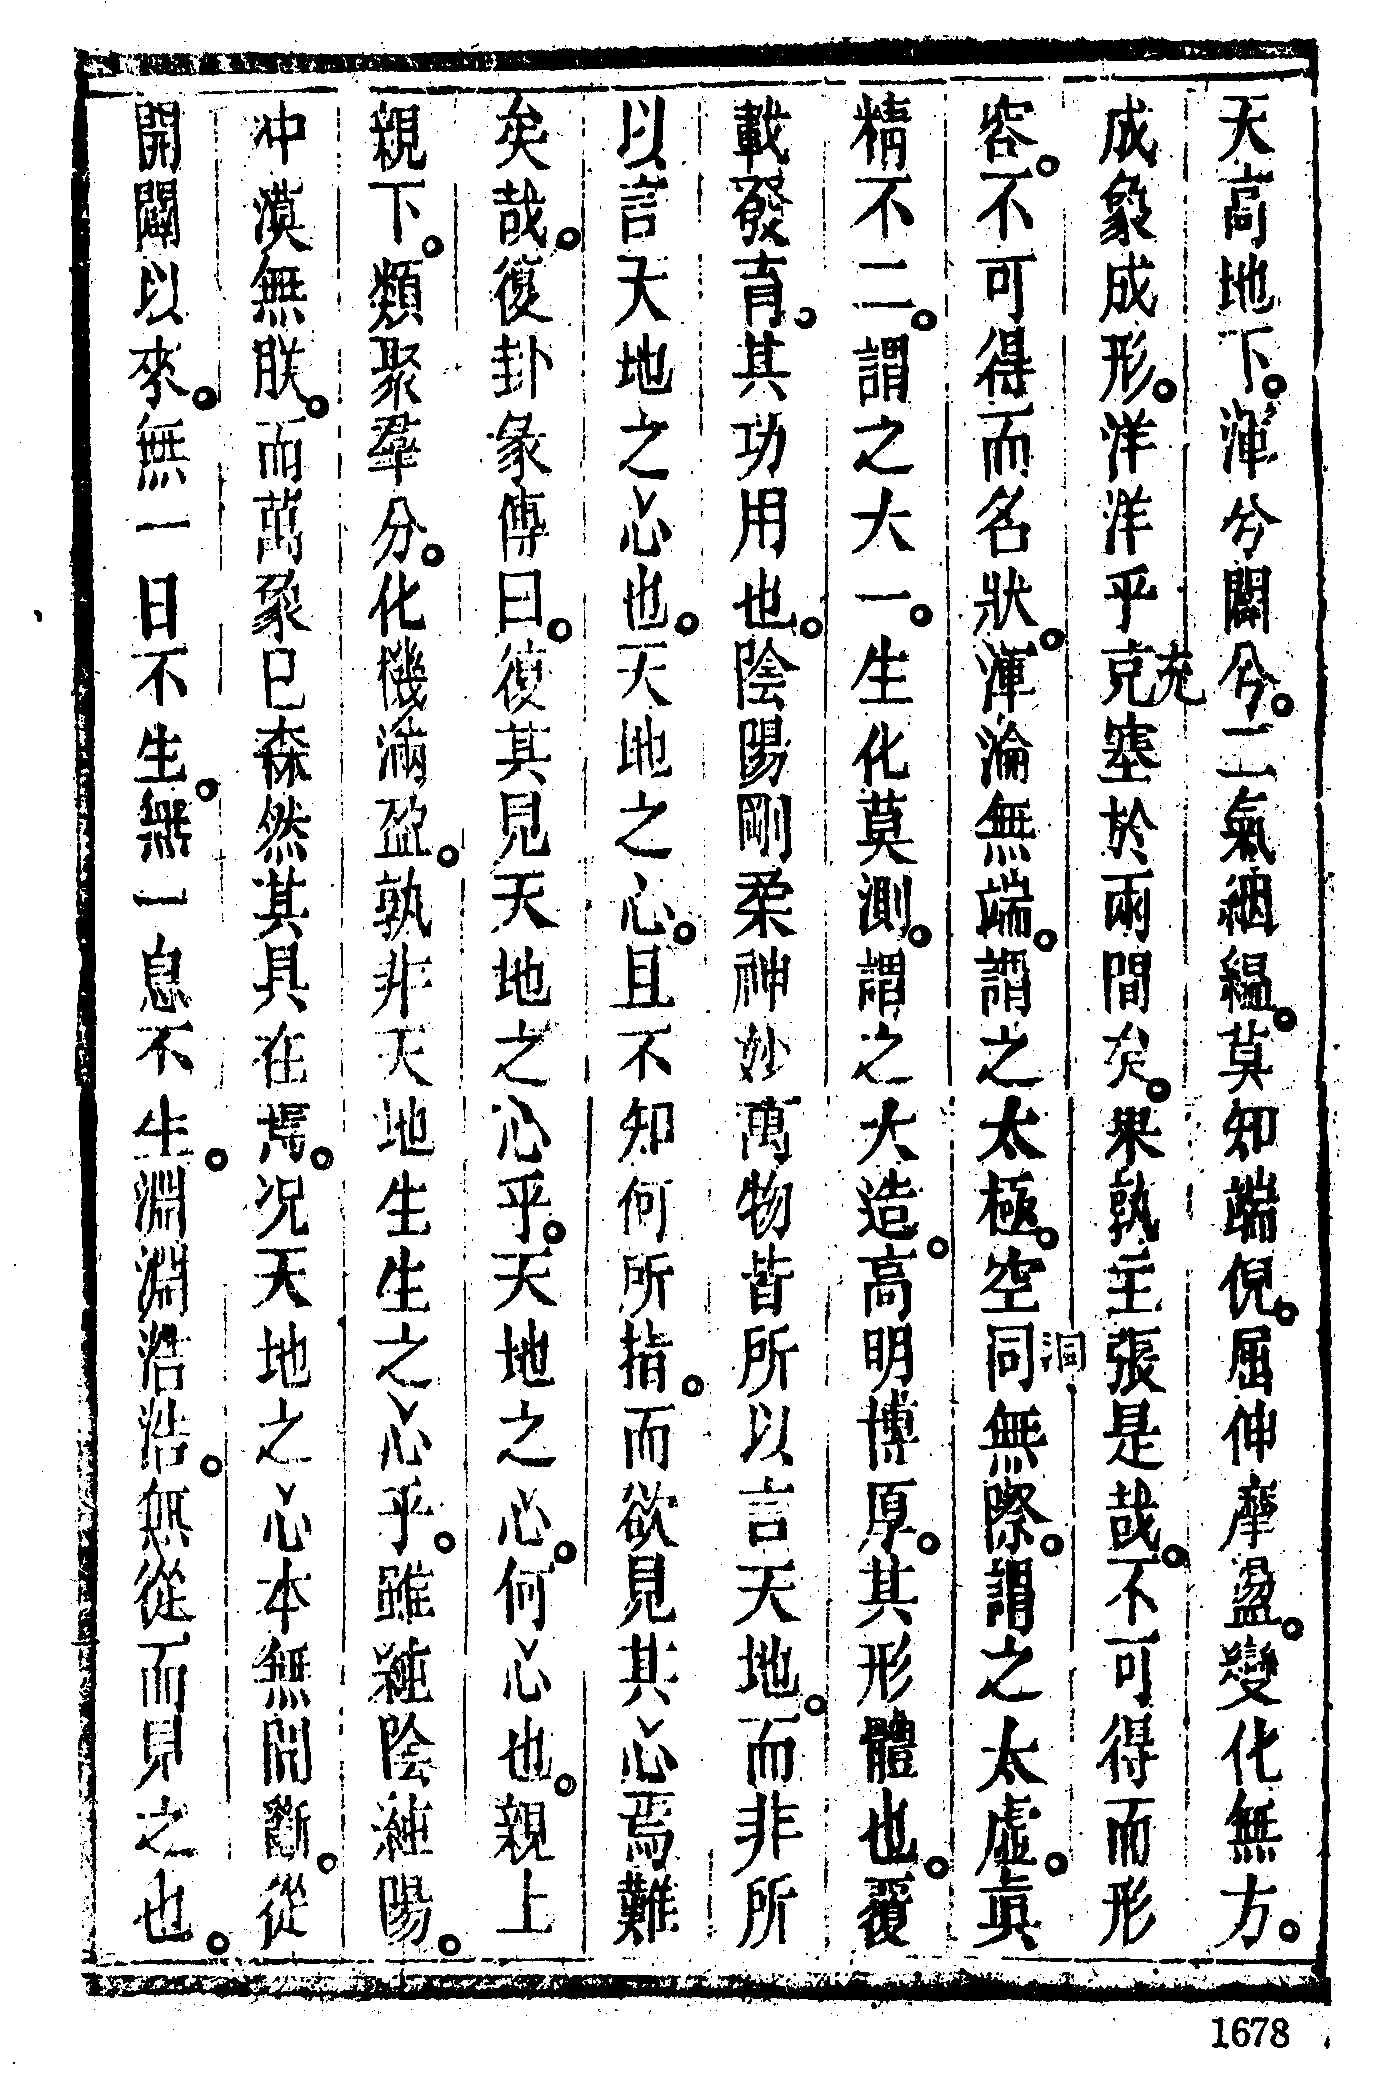 天高地下。渾兮闢兮。二氣絪縕。莫知端倪。屈伸摩盪。變化無方。
成象成形。洋洋乎克充塞於兩間矣。果孰主張是哉。不可得而形
容。不可得而名狀。渾淪無端。謂之太極。空同洞無際。謂之太虛。眞
精不二。謂之大一。生化莫測。謂之大造。高明博厚。其形體也。覆
載發育。其功用也。陰陽剛柔神妙萬物皆所以言天地。而非所
以言天地之心也。天地之心。且不知何所指。而欲見其心焉難
矣哉。復卦彖傳曰。復其見天地之心乎。天地之心。何心也。親上
親下。類聚羣分。化機滿盈。孰非天地生生之心乎。雖純陰純陽。
冲漠無朕。而萬象已森然其具在焉。况天地之心本無間斷。從
開闢以來。無一日不生。無一息不生。淵淵浩浩。無從而見之也。
1678